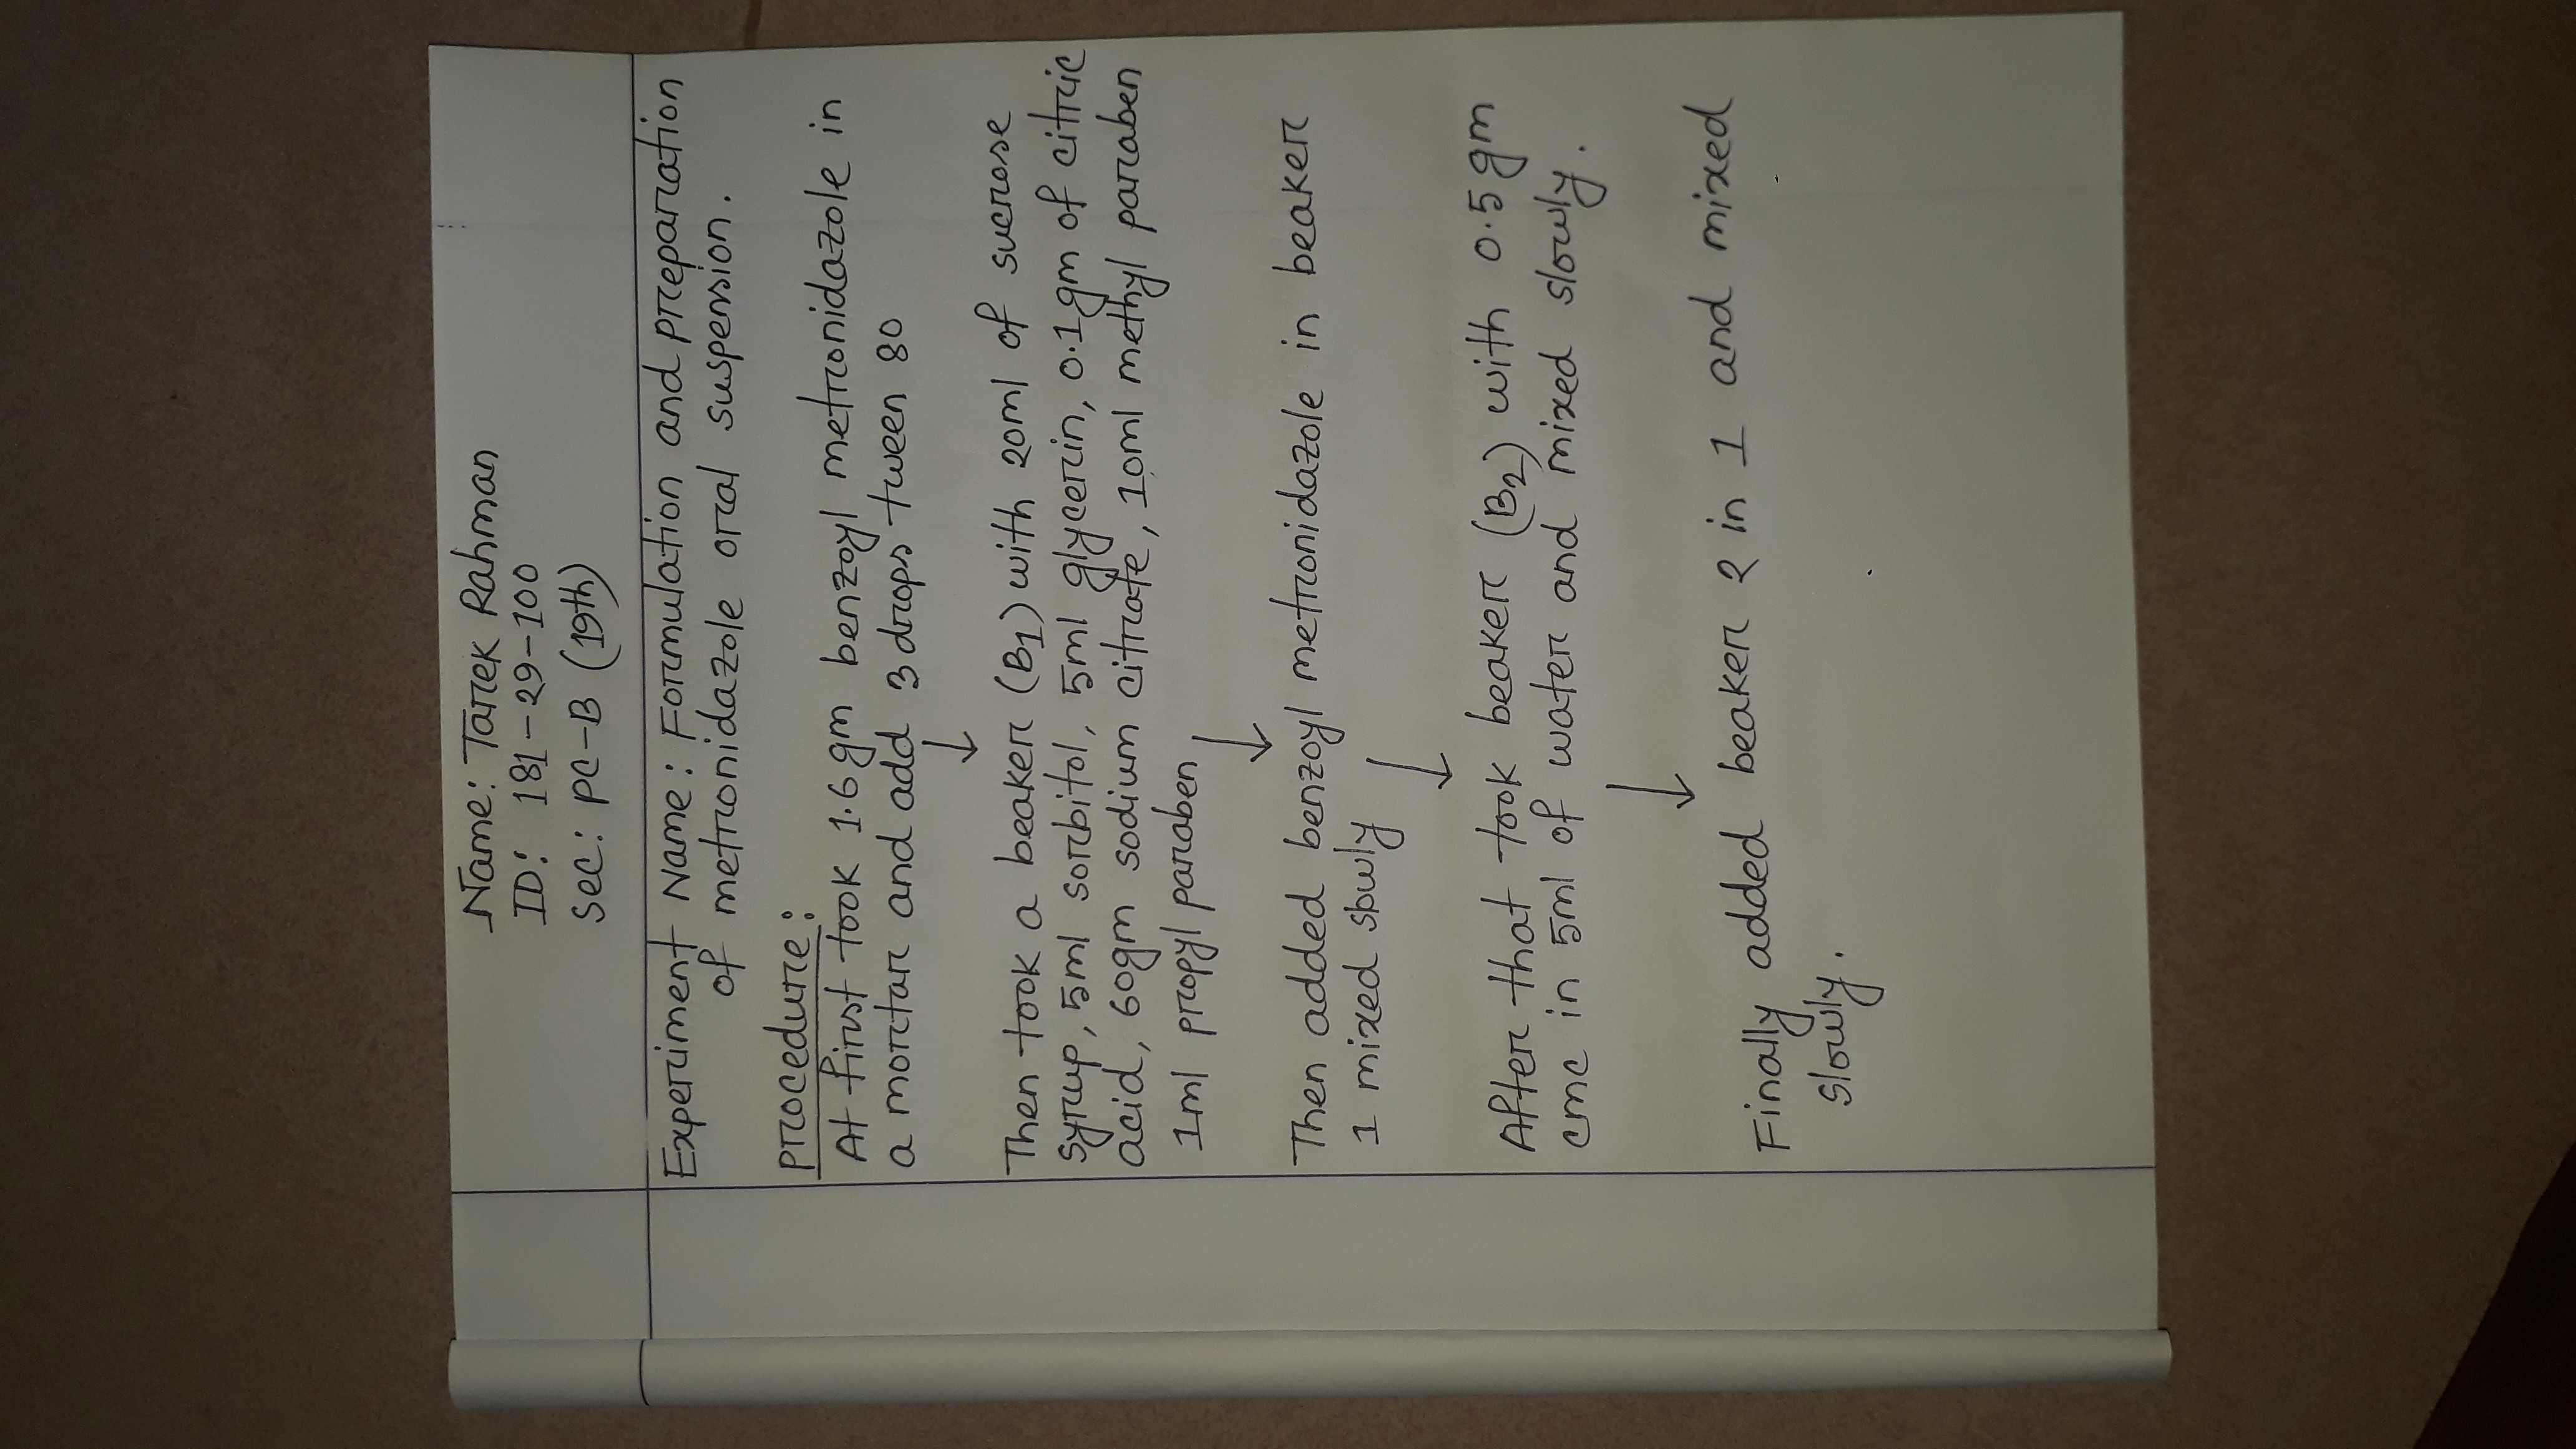 Name: Tarek Rahman
ID: 181-29-100
Sec: PC-B (19th)
Experiment Name: Formulation and preparation
of metronidazole oral suspension.
procedure:
At first took 1.6gm benzoyl metronidazole in
a mortar and add 3 drops tween 80
↓
Then took a beaker (B1) with 20ml of sucrose
syrup, 5ml sorbitol, 5ml glycerin, 0.1gm of citric
acid, 60gm sodium citrate, 10ml methyl paraben
1ml propyl paraben,
↓
Then added benzoyl metronidazole in beaker
1 mixed slowly
↓
After that took beaker (B2) with 0.5gm
cmc in 5ml of water and mixed slowly.
↓
Finally added beaker 2 in 1 and mixed
slowly.